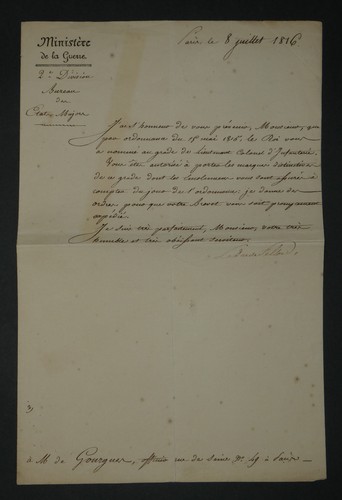 Ministère
de la Guerre
2e Division
Bureau
des
États-Major
Paris le 8 juillet 1816
J'ai l'honneur de vous prévenir, Monsieur, que
par ordonnance du 15 mai 1816 le Roi vous
a nommé au grade de Lieutenant Colonel d'Infanterie.
Vous êtes autorisé à porter les marques distinctives
de ce grade dont les émolumens vous sont assurés à
compter du jour de l'ordonnance; je donne des
ordres pour que votre Brevet vous soit promptement
expédié.
Je suis très parfaitement, Monsieur, votre très
humble et très obéissant serviteur.
à M de Gourgues, officier rue de Seine 49 à Paris